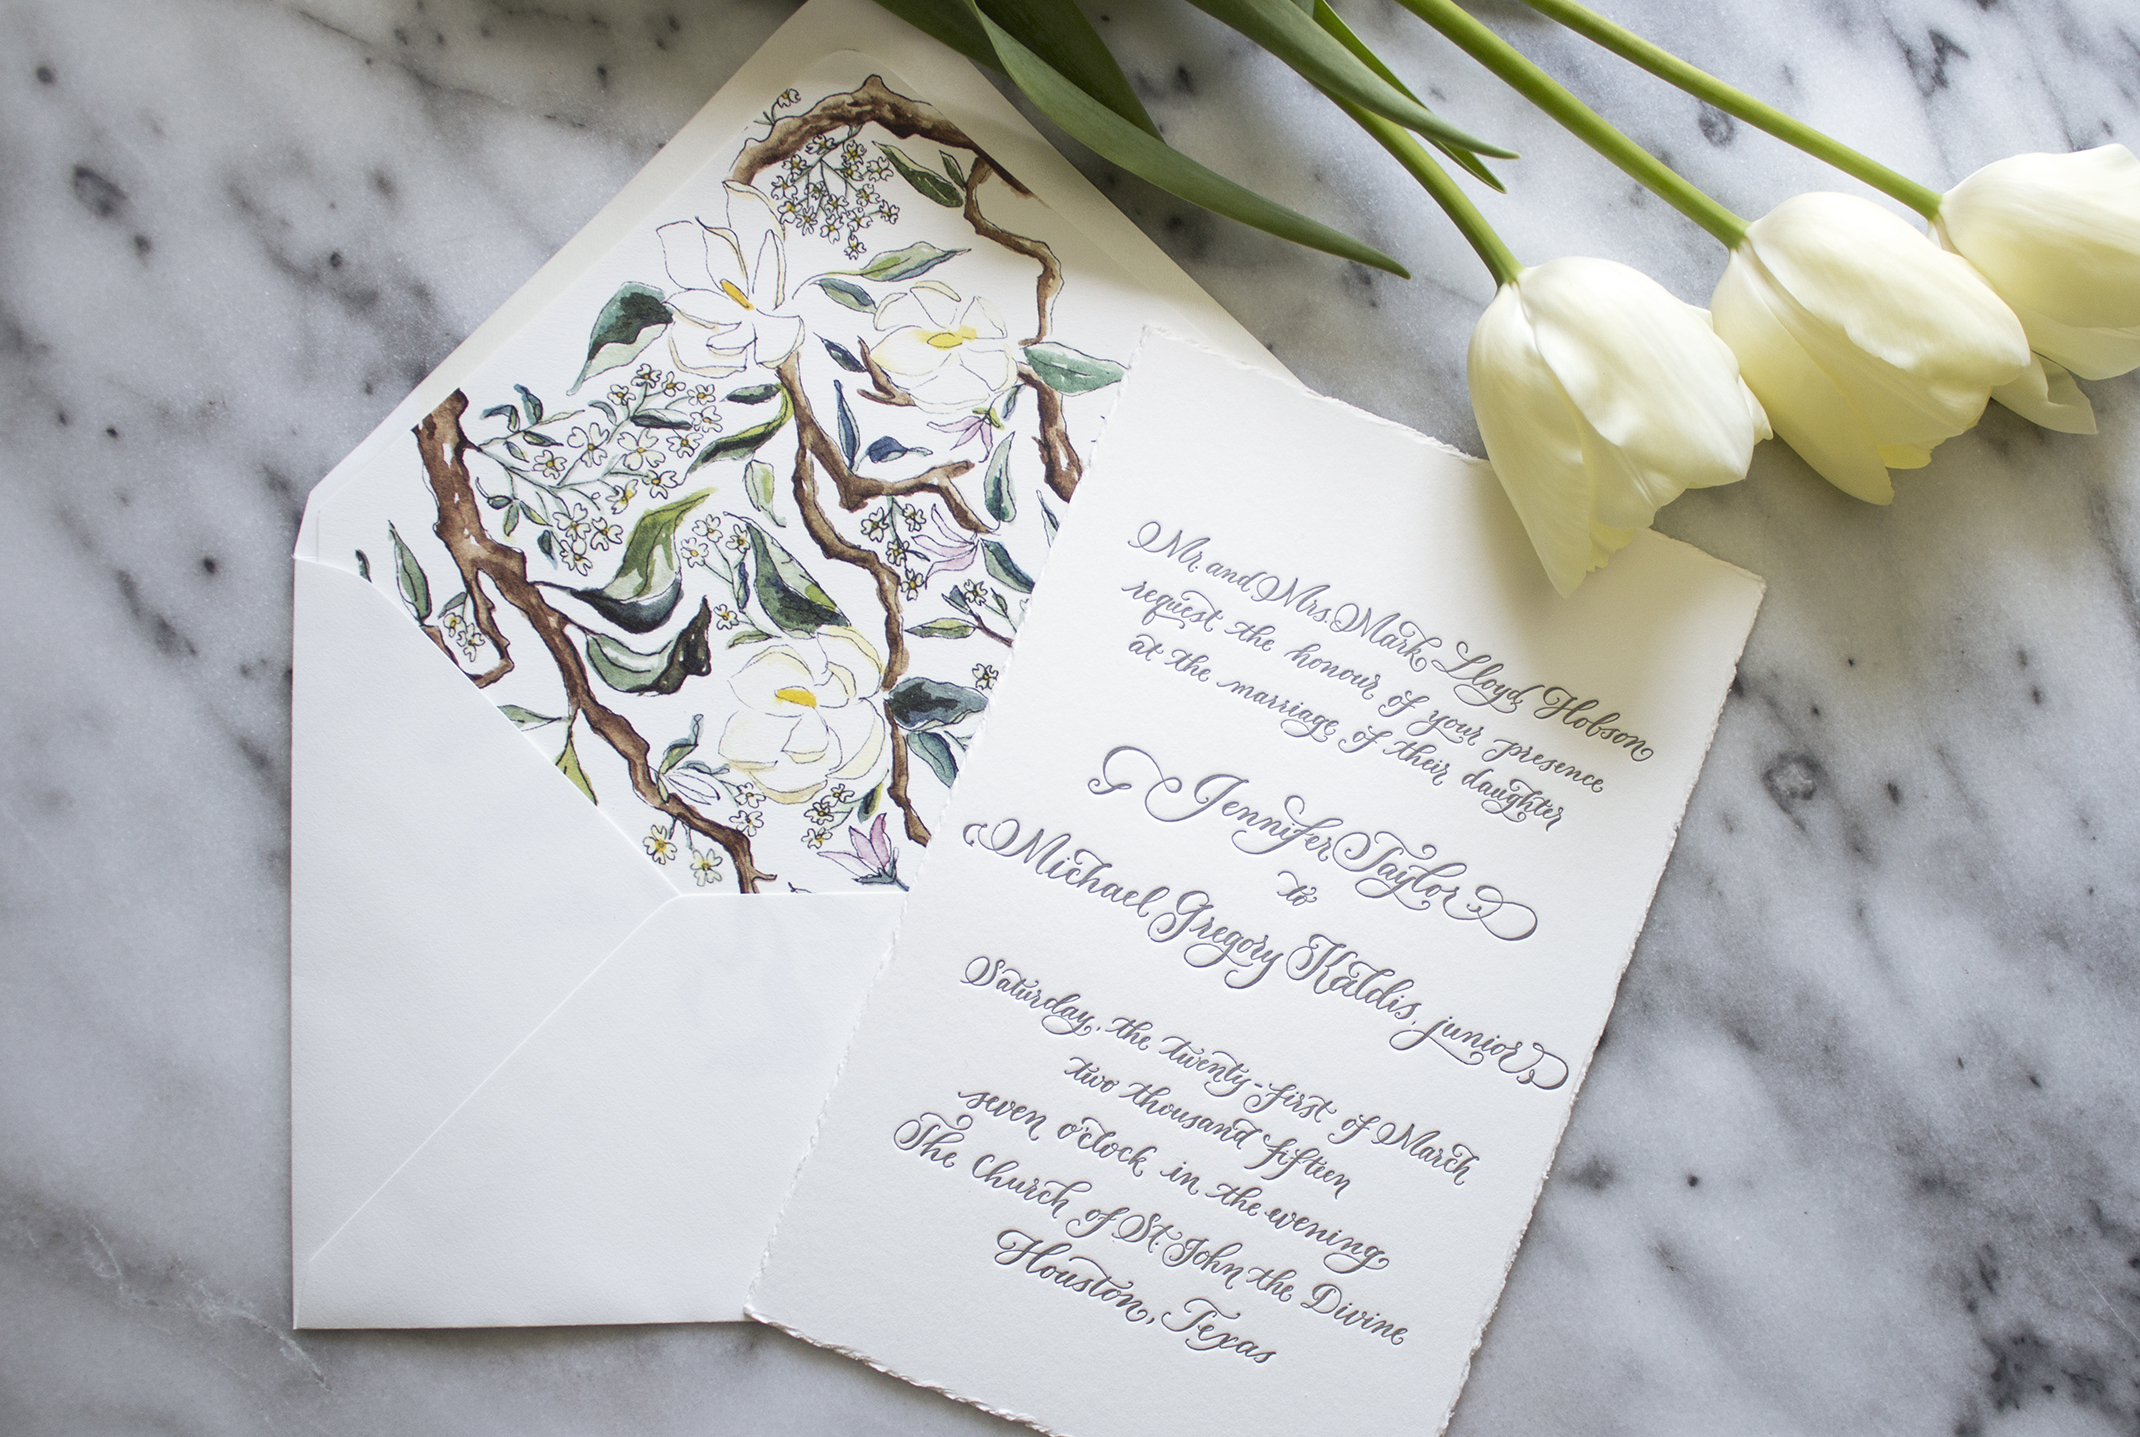 Mr. and Mrs. Mark Lloyd Hobson
request the honour of your presence
at the marriage of their daughter
Jennifer Taylor
to
Michael Gregory Kaldis, junior
Saturday, the twenty-first of March
two thousand fifteen
seven o'clock in the evening
The Church of St. John the Divine
Houston, Texas